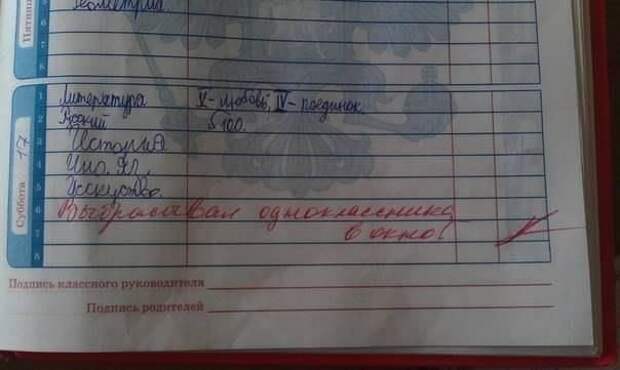 Пятниц
Геометрия
6
7
8
Суббота 17
1 Литература V - любовь, IV - поединок
2 Русский § 100.
3 История
4 Ино. яз.
5 Исскуство.
6 Выбрасывал одноклассника
7 в окно!
8
Подпись классного руководителя
Подпись родителей